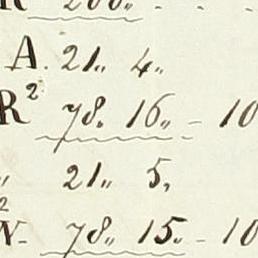 R 200„ - - -
A. 21„ 4„
R² 78„ 16„ - 10
„ 21„ 5,
N²- 78„ 15„ - 10